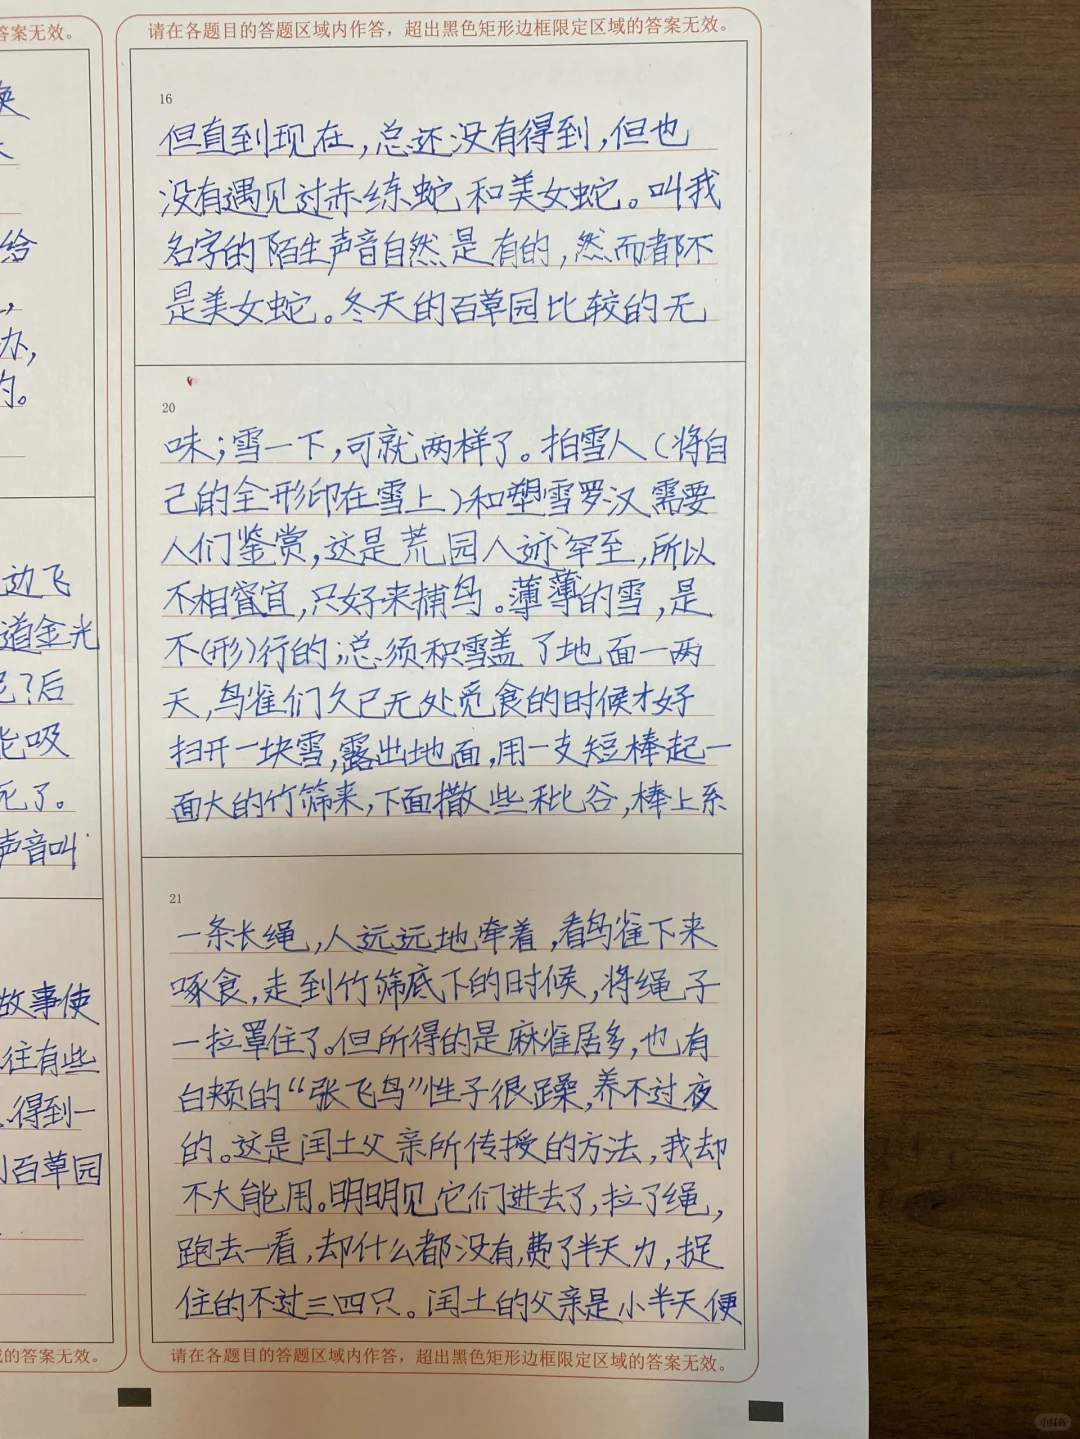 答案无效。
换
给
，
办，
的。
边飞
道金光
呢？后
能吸
死了。
声音叫
故事使
往往有些
得到一
到百草园
的答案无效。
请在各题目的答题区域内作答，超出黑色矩形边框限定区域的答案无效。
16
但直到现在，总还没有得到，但也
没有遇见过赤练蛇和美女蛇。叫我
名字的陌生声音自然是有的，然而都不
是美女蛇。冬天的百草园比较的无
20
味；雪一下，可就两样了。拍雪人（将自
己的全形印在雪上）和塑雪罗汉需要
人们鉴赏，这是荒园人迹罕至，所以
不相宜，只好来捕鸟。薄薄的雪，是
不（形）行的；总须积雪盖了地面一两
天，鸟雀们久已无处觅食的时候才好
扫开一块雪，露出地面，用一支短棒起一
面大的竹筛来，下面撒些秕谷，棒上系
21
一条长绳，人远远地牵着，看鸟雀下来
啄食，走到竹筛底下的时候，将绳子
一拉罩住了。但所得的是麻雀居多，也有
白颊的“张飞鸟”性子很躁，养不过夜
的。这是闰土父亲所传授的方法，我却
不大能用。明明见它们进去了，拉了绳，
跑去一看，却什么都没有，费了半天力，捉
住的不过三四只。闰土的父亲是小半天便
请在各题目的答题区域内作答，超出黑色矩形边框限定区域的答案无效。
小红书